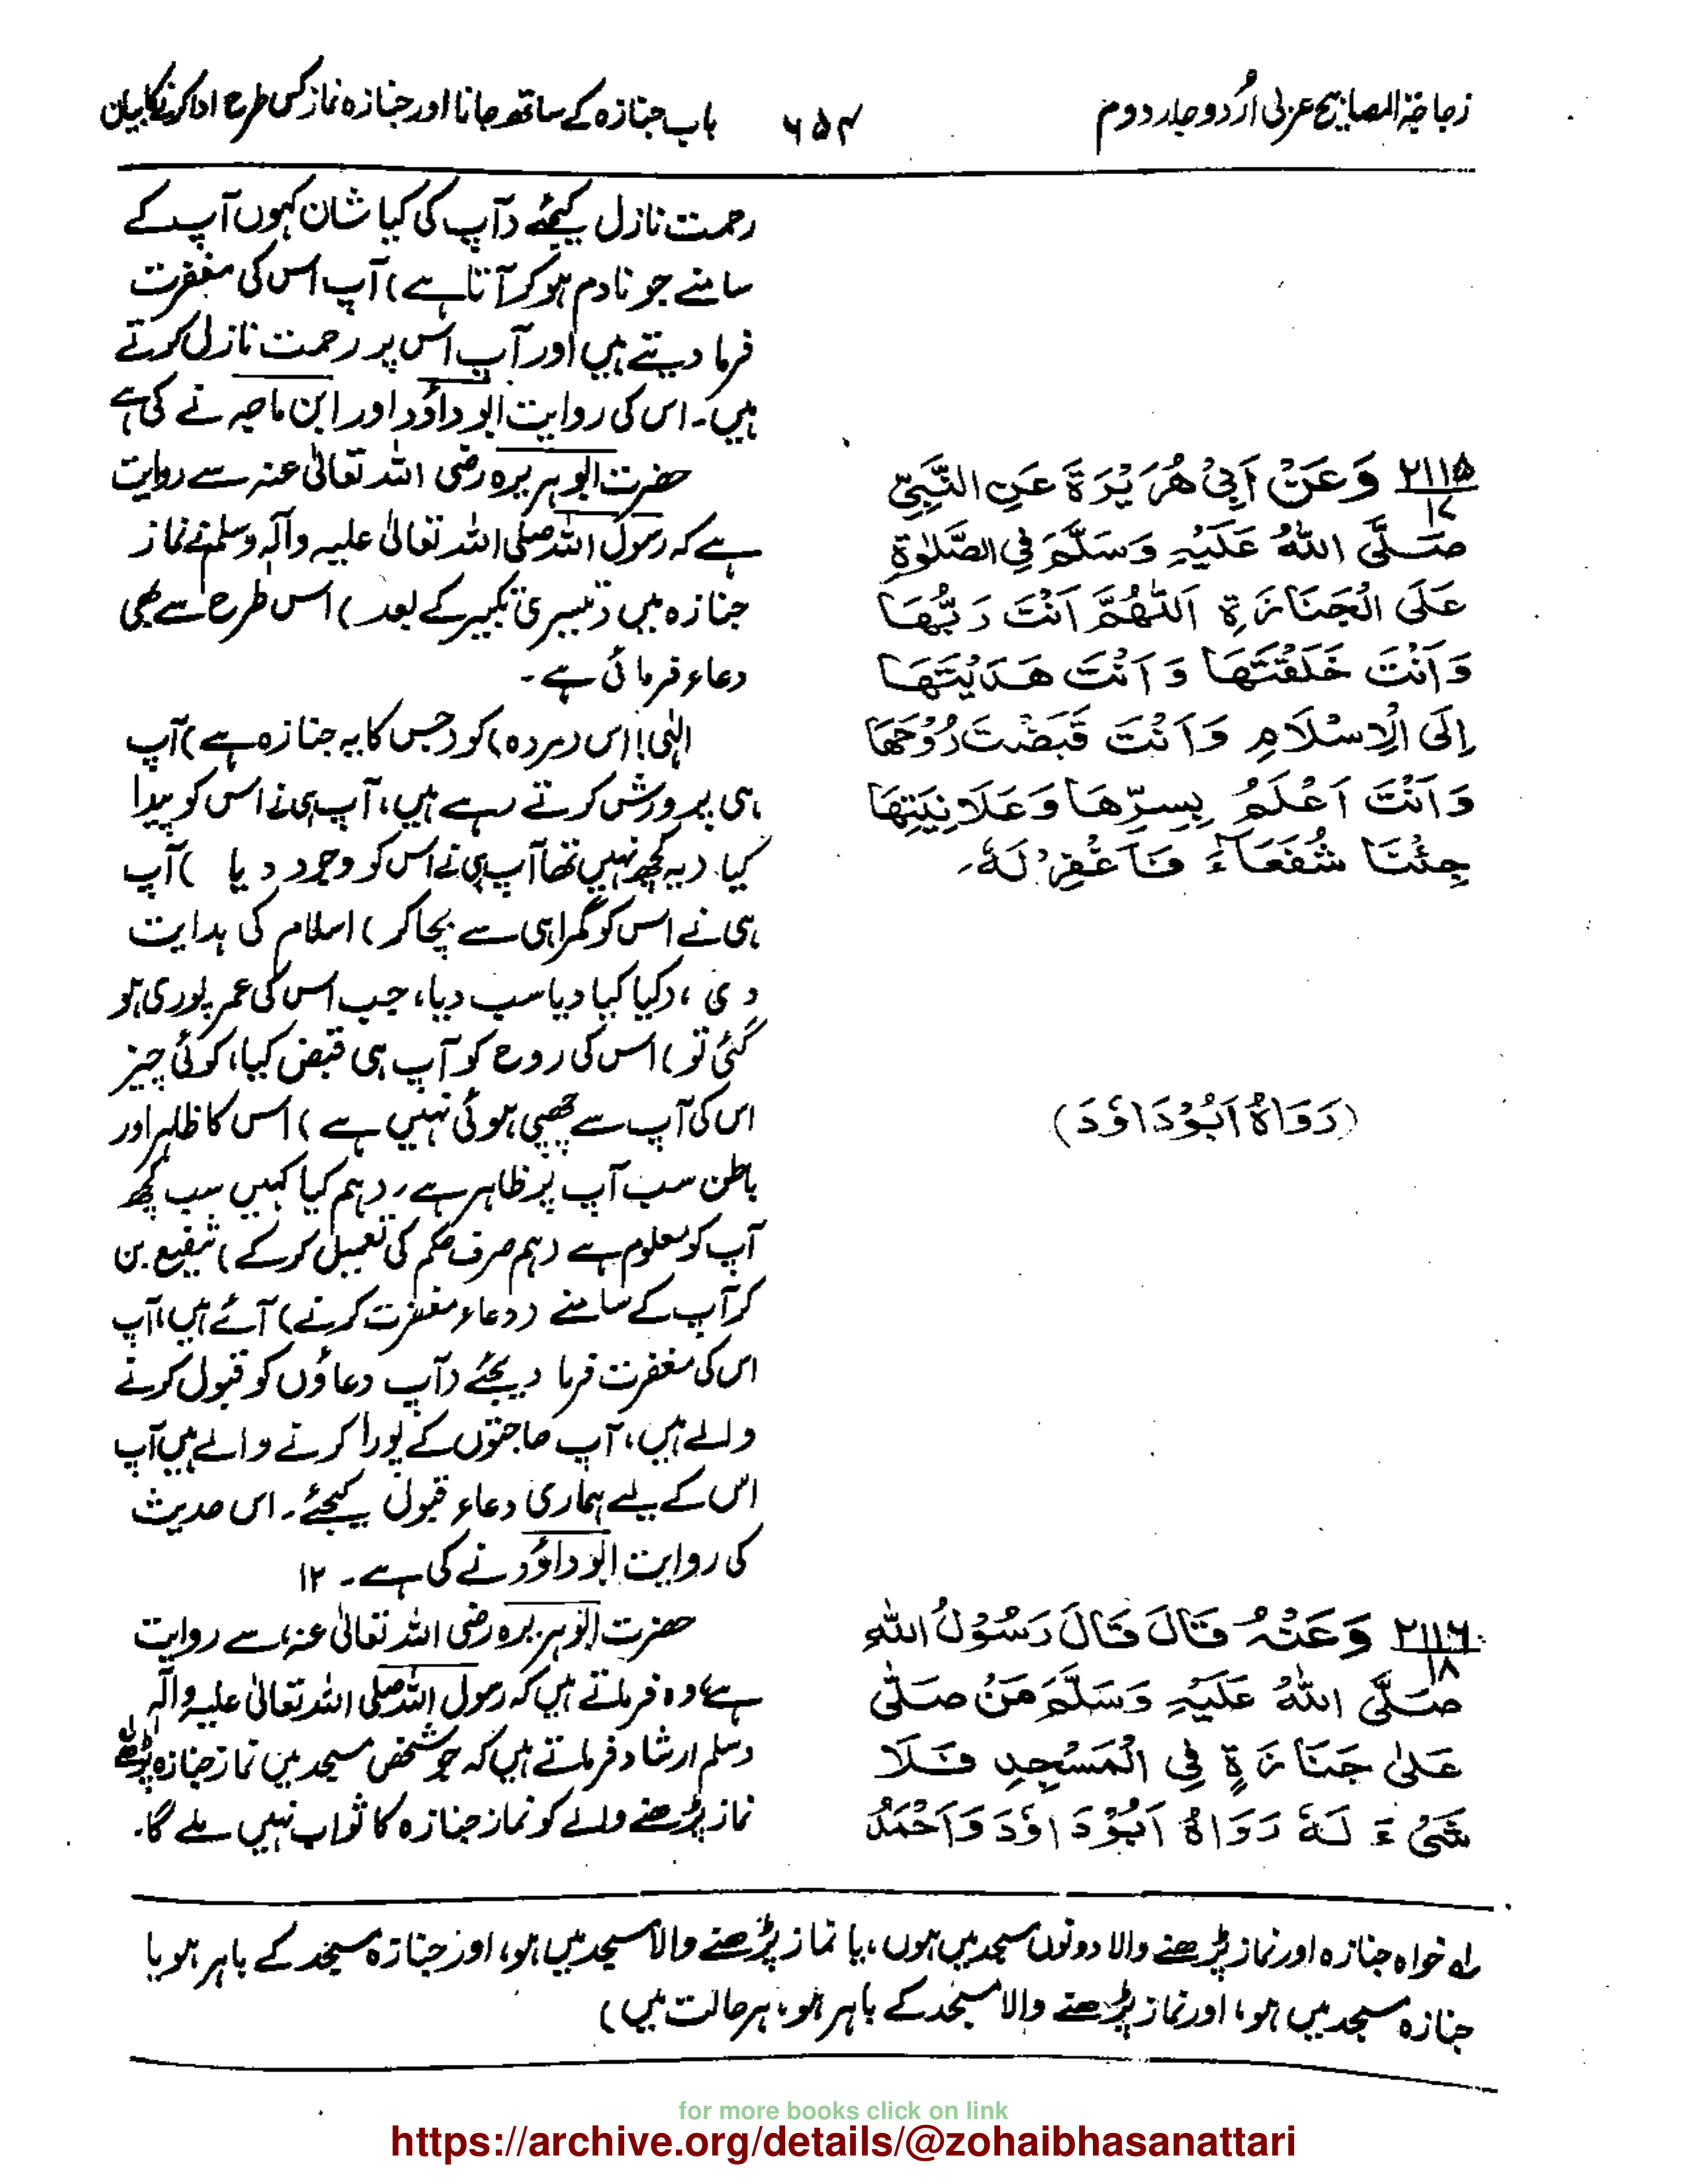 زجاجۃ المصابیح عربی اُردو جلد دوم
۶۵۴
باب جنازہ کے ساتھ جانا اور جنازہ نماز کس طرح ادا کرنیکا بیان
رحمت نازل کیجئے (آپ کی کیا شان کہوں آپ کے
سامنے جو نادم ہو کر آتا ہے) آپ اس کی مغفرت
فرما دیتے ہیں اور آپ اس پر رحمت نازل کرتے
ہیں۔ اس کی روایت ابو داؤد اور ابن ماجہ نے کی ہے
۲۱۱۵
۱۷
وَعَنْ اَبِیْ ھُرَیْرَۃَ عَنِ النَّبِیِّ
صَلَّی اللّٰہُ عَلَیْہِ وَسَلَّمَ فِی الصَّلٰوۃِ
عَلَی الْجَنَازَۃِ اَللّٰھُمَّ اَنْتَ رَبُّھَا
وَاَنْتَ خَلَقْتَھَا وَاَنْتَ ھَدَیْتَھَا
اِلَی الْاِسْلَامِ وَاَنْتَ قَبَضْتَ رُوْحَھَا
وَاَنْتَ اَعْلَمُ بِسِرِّھَا وَعَلَانِیَتِھَا
جِئْنَا شُفَعَآءَ فَاغْفِرْ لَہٗ۔
(رَوَاہُ اَبُوْدَاوٗدَ)
حضرت ابو ہریرہ رضی اللہ تعالیٰ عنہ سے روایت
ہے کہ رسول اللہ صلی اللہ تعالیٰ علیہ وآلہ وسلم نے نماز
جنازہ میں (تیسری تکبیر کے بعد) اس طرح سے بھی
دعاء فرمائی ہے۔
الٰہی! اس (مردہ) کو (جس کا یہ جنازہ ہے) آپ
ہی پرورش کرتے رہے ہیں، آپ ہی نے اس کو پیدا
کیا۔ (یہ کچھ نہیں تھا آپ ہی نے اس کو وجود دیا ) آپ
ہی نے اس کو گمراہی سے بچا کر) اسلام کی ہدایت
دی، (کیا کیا دیا سب دیا، جب اس کی عمر پوری ہو
گئی تو) اس کی روح کو آپ ہی قبض کیا، کوئی چیز
اس کی آپ سے چھپی ہوئی نہیں ہے) اس کا ظاہر اور
باطن سب آپ پر ظاہر ہے، (ہم کیا کہیں سب کچھ
آپ کو معلوم ہے (ہم صرف حکم کی تعمیل کر کے) شفیع بن
کر آپ کے سامنے (دعاء مغفرت کرنے) آئے ہیں، آپ
اس کی مغفرت فرما دیجئے (آپ دعاؤں کو قبول کرنے
والے ہیں، آپ حاجتوں کے پورا کرنے والے ہیں آپ
اس کے لیے ہماری دعاء قبول کیجئے۔ اس حدیث
کی روایت ابو داؤد نے کی ہے۔ ۱۲
۲۱۱۶
۱۸
وَعَنْہُ قَالَ قَالَ رَسُوْلُ اللّٰہِ
صَلَّی اللّٰہُ عَلَیْہِ وَسَلَّمَ مَنْ صَلّٰی
عَلٰی جَنَازَۃٍ فِی الْمَسْجِدِ فَلَا
شَیْءَ لَہٗ رَوَاہُ اَبُوْدَاوٗدَ وَاَحْمَدُ
حضرت ابو ہریرہ رضی اللہ تعالیٰ عنہ، سے روایت
ہے، وہ فرماتے ہیں کہ رسول اللہ صلی اللہ تعالیٰ علیہ وآلہٖ
وسلم ارشاد فرماتے ہیں کہ جو شخص مسجد میں نماز جنازہ پڑھے
نماز پڑھنے والے کو نماز جنازہ کا ثواب نہیں ملے گا۔
لہ خواہ جنازہ اور نماز پڑھنے والا دونوں مسجد میں ہوں، یا نماز پڑھنے والا مسجد میں ہو، اور جنازہ مسجد کے باہر ہو یا
جنازہ مسجد میں ہو، اور نماز پڑھنے والا مسجد کے باہر ہو، ہر حالت میں)
for more books click on link
https://archive.org/details/@zohaibhasanattari